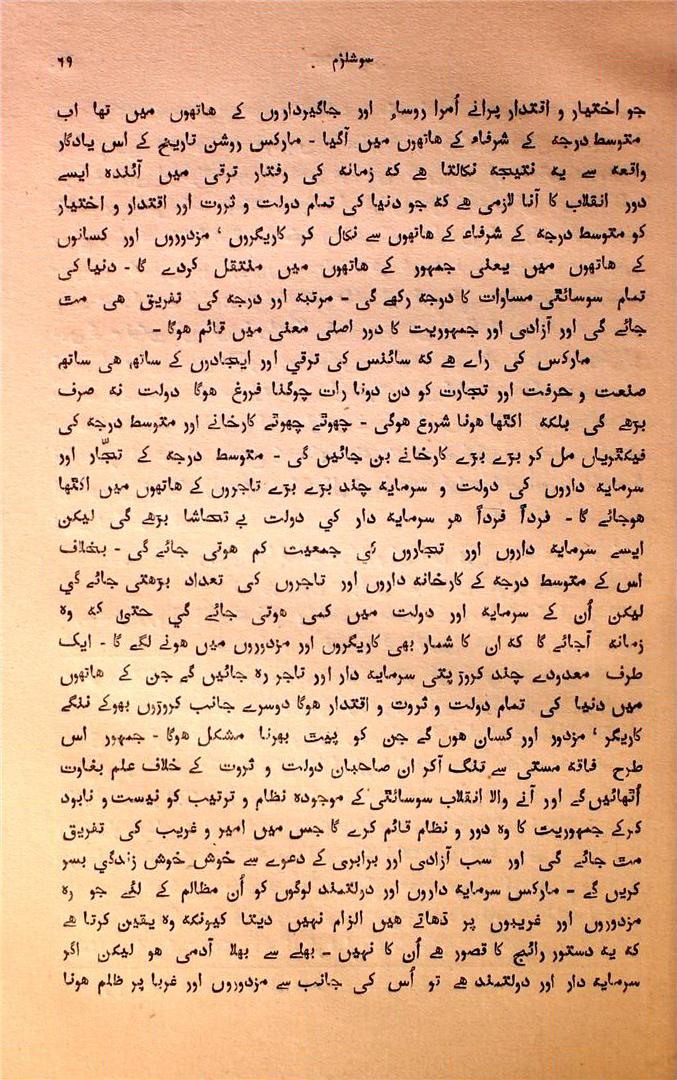 سوشلزم ۶۹
جو اختیار و اقتدار پرانے اُمرا روساء اور جاگیرداروں کے ھاتھوں میں تھا اب
متوسط درجہ کے شرفاء کے ھاتھوں میں آگیا - مارکس روشن تاریخ کے اس یادگار
واقعہ سے یہ نتیجہ نکالتا ھے کہ زمانہ کی رفتار ترقی میں آئندہ ایسے
دور انقلاب کا آنا لازمی ھے کہ جو دنیا کی تمام دولت و ثروت اور اقتدار و اختیار
کو متوسط درجہ کے شرفاء کے ھاتھوں سے نکال کر کاریگروں ' مزدوروں اور کسانوں
کے ھاتھوں میں یعنی جمہور کے ھاتھوں میں منتقل کردے گا - دنیا کی
تمام سوسائٹی مساوات کا درجہ رکھے گی - مرتبہ اور درجہ کی تفریق ھی مت
جائے گی اور آزادی اور جمہوریت کا دور اصلی معنی میں قائم ھوگا -
مارکس کی راے ھے کہ سائنس کی ترقی اور ایجادوں کے ساتھ ھی ساتھ
صنعت و حرفت اور تجارت کو دن دونا رات چوگنا فروغ ھوگا دولت نہ صرف
بڑھے گی بلکہ اکٹھا ھونا شروع ھوگی - چھوٹے چھوٹے کارخانے اور متوسط درجہ کی
فیکٹریاں مل کر بڑے بڑے کارخانے بن جائیں گی - متوسط درجہ کے تجّار اور
سرمایہ داروں کی دولت و سرمایہ چند بڑے بڑے تاجروں کے ھاتھوں میں اکٹھا
ھوجائے گا - فرداً فرداً ھر سرمایہ دار کی دولت بے تحاشا بڑھے گی لیکن
ایسے سرمایہ داروں اور تجاروں کی جمعیت کم ھوتی جائے گی - بخلاف
اس کے متوسط درجہ کے کارخانہ داروں اور تاجروں کی تعداد بڑھتی جائے گی
لیکن اُن کے سرمایہ اور دولت میں کمی ھوتی جائے گی حتیٰ کہ وہ
زمانہ آجائے گا کہ ان کا شمار بھی کاریگروں اور مزدوروں میں ھونے لگے گا - ایک
طرف معدودے چند کروڑ پتی سرمایہ دار اور تاجر رہ جائیں گے جن کے ھاتھوں
میں دنیا کی تمام دولت و ثروت و اقتدار ھوگا دوسرے جانب کروڑوں بھوکے ننگے
کاریگر ' مزدور اور کسان ھوں گے جن کو پیت بھرنا مشکل ھوگا - جمہور اس
طرح فاقہ مستی سے تنگ آکر ان صاحبان دولت و ثروت کے خلاف علم بغاوت
اُٹھائیں گے اور آنے والا انقلاب سوسائٹی کے موجودہ نظام و ترتیب کو نیست و نابود
کرکے جمہوریت کا وہ دور و نظام قائم کرے گا جس میں امیر و غریب کی تفریق
مت جائے گی اور سب آزادی اور برابری کے دعوے سے خوش خوش زندگی بسر
کریں گے - مارکس سرمایہ داروں اور دولتمند لوگوں کو اُن مظالم کے لئے جو وہ
مزدوروں اور غریبوں پر ڈھاتے ھیں الزام نہیں دیتا کیونکہ وہ یقین کرتا ھے
کہ یہ دستور رائج کا قصور ھے اُن کا نہیں - بھلے سے بھلا آدمی ھو لیکن اگر
سرمایہ دار اور دولتمند ھے تو اُس کی جانب سے مزدوروں اور غربا پر ظلم ھونا